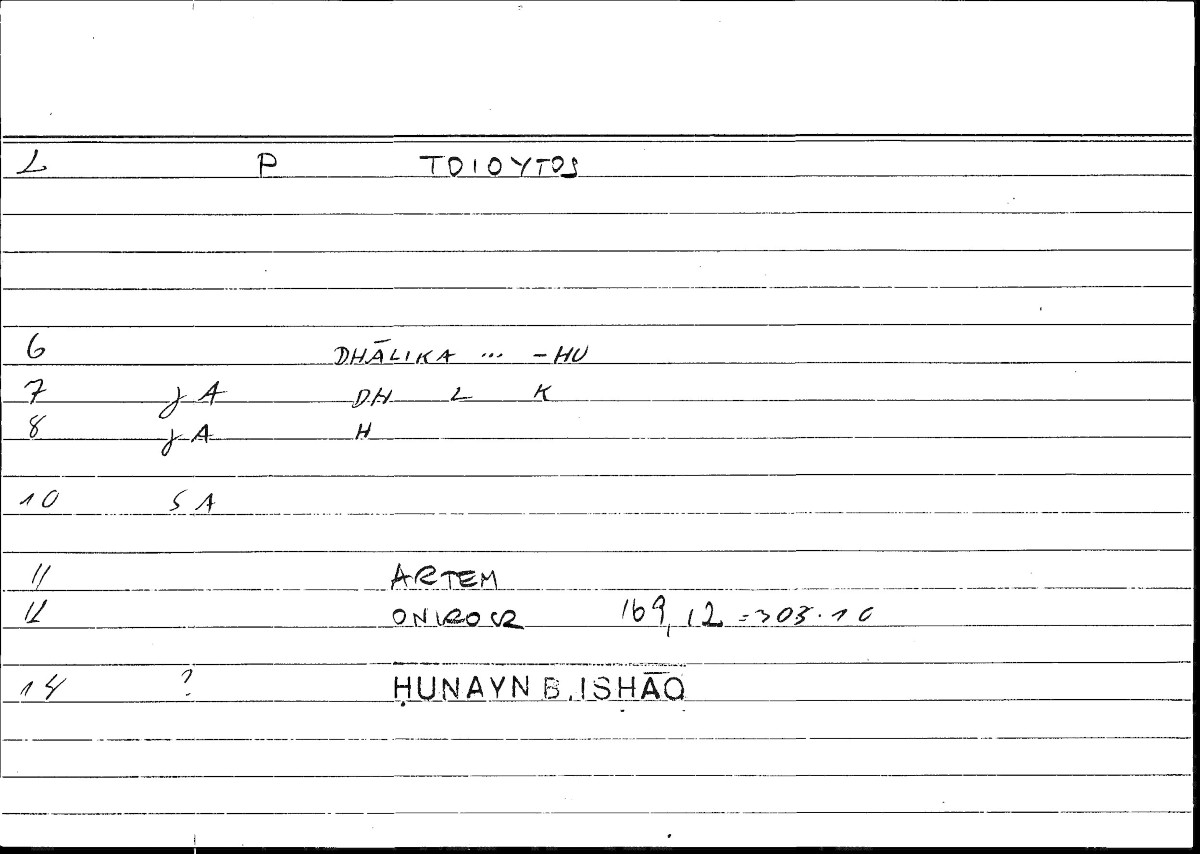 L P TOIOYTOS
6 DHĀLIKA ... -HU
7 J A DH L K
8 J A H
10 S A
11 ARTEM
12 ONIROCR 169,12=303.10
14 ? ḤUNAYN B. ISḤĀQ